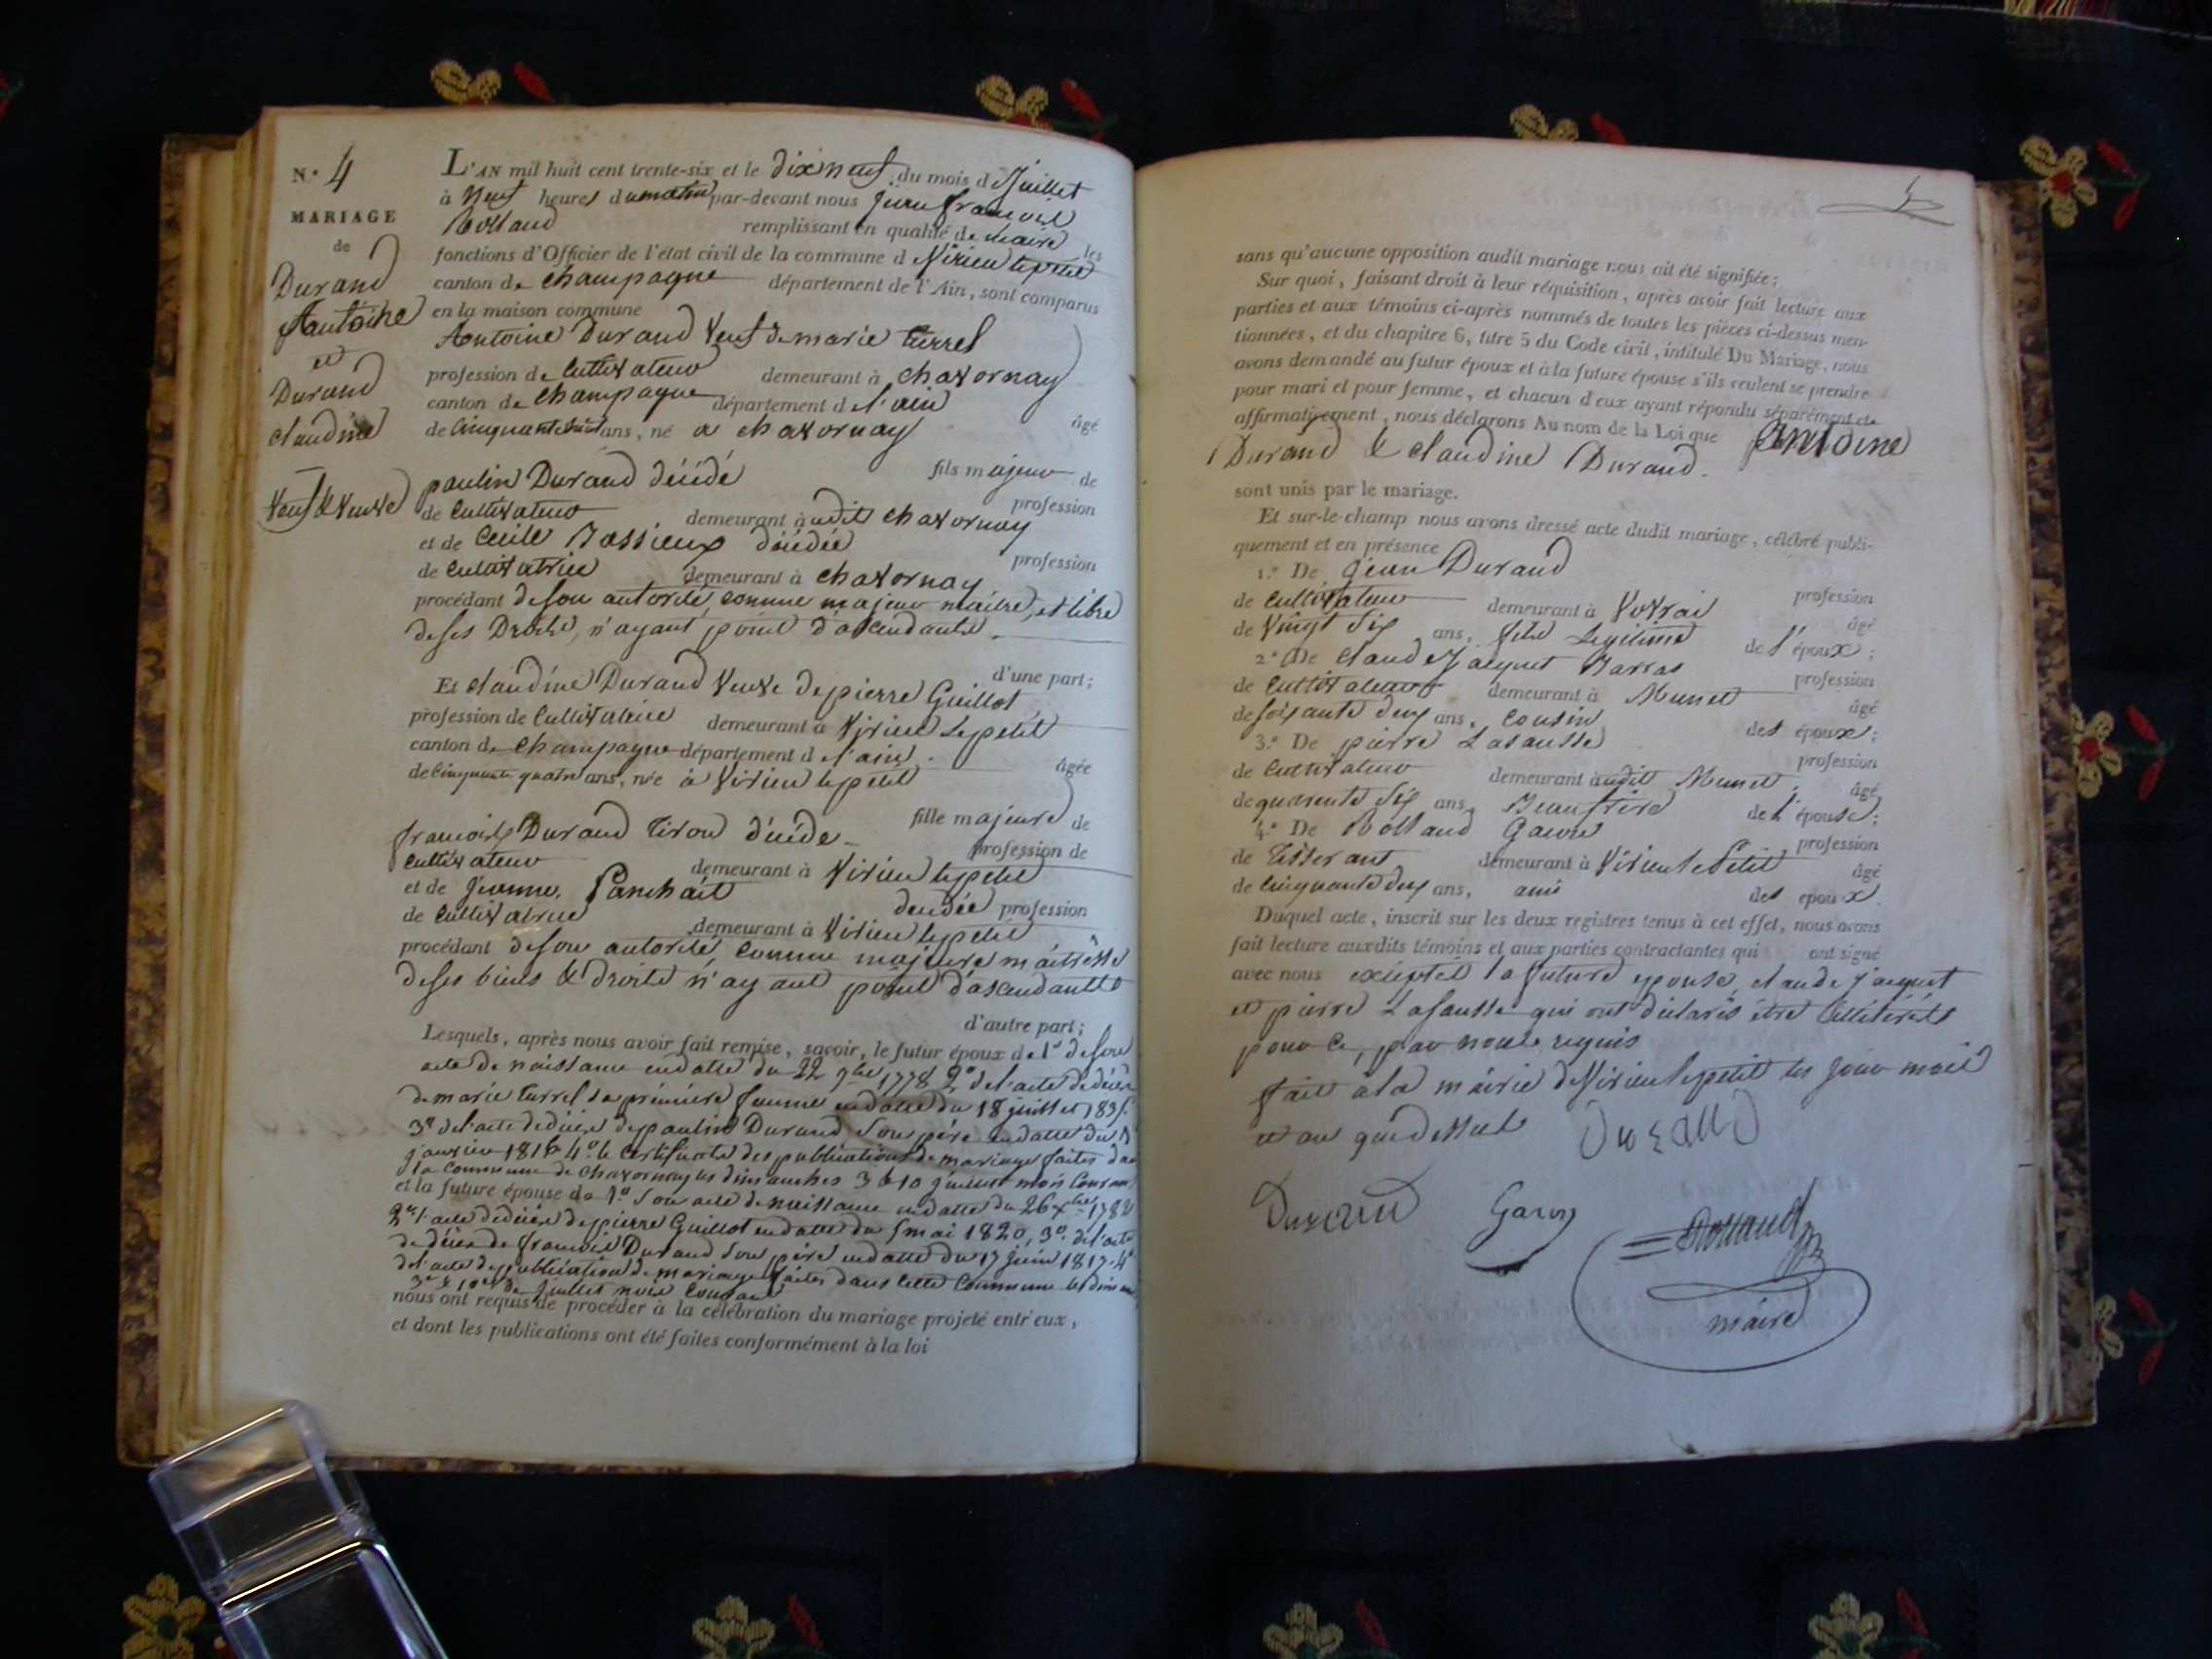 N.° 4
MARIAGE
de
Durand
Antoine
et
Durand
claudine
Veuf & Veuve
L'AN mil huit cent trente-six et le dix neuf du mois de Juillet
à Neuf heures du matin par-devant nous jean françois
Rolland remplissant en qualité de maire les
fonctions d'Officier de l'état civil de la commune d Virieu le petit
canton de champagne département de l'Ain, sont comparus
en la maison commune
Antoine Durand Veuf de marie turrel
profession de Cultivateur demeurant à chavornay
canton de Champagne département d l'ain âgé
de Cinquante huit ans, né à chavornay
fils majeur de
paulin Durand décédé profession
de Cultivateur demeurant audit chavornay
et de Cecile décédée profession
de Cultivatrice demeurant à chavornay
procédant de son autorité, comme majeur maitre, et libre
de ses Droits, n'ayant point d'ascendants.
d'une part;
Et claudine Durand Veuve de pierre Guillot
profession de Cultivatrice demeurant à Virieu Le petit
canton de Champagne département d l'ain. âgée
de Cinquante quatre ans, née à Virieu le petit
fille majeure de
françois Durand Tirou décédé profession de
Cultivateur demeurant à Virieu le petit
et de Jeanne décédée profession
de Cultivatrice demeurant à Virieu le petit
procédant de son autorité, comme majeure maitresse
de ses biens & droits n'ayant point d'ascendants
d'autre part;
Lesquels, après nous avoir fait remise, savoir, le futur époux de 1° de son
acte de naissance en datte du 22 9bre 1778 2° de l'acte de décès
de marie turrel sa première femme en datte du 18 juillet 1835.
3° de l'acte de décès de paulin Durand son père en datte du
janvier 1816 4° le Certificate des publications de mariage faites dans
la Commune de Chavornay les dimanches 3 & 10 juillet mois Courant
et la future épouse de 1° son acte de naissance en datte du 26 Xbre 1782
2° l'acte de décès de pierre Guillot en datte du 5 mai 1820, 3° de l'acte
de décès de françois Durand son père en datte du 17 juin 1817. 4°
de l'acte de publication de mariage faites dans cette Commune les
3 & 10 de juillet mois Courant
nous ont requis de procéder à la célébration du mariage projeté entr'eux,
et dont les publications ont été faites conformément à la loi
sans qu'aucune opposition audit mariage nous ait été signifiée;
Sur quoi, faisant droit à leur réquisition, après avoir fait lecture aux
parties et aux témoins ci-après nommés de toutes les pièces ci-dessus men-
tionnées, et du chapitre 6, titre 5 du Code civil, intitulé Du Mariage, nous
avons demandé au futur époux et à la future épouse s'ils veulent se prendre
pour mari et pour femme, et chacun d'eux ayant répondu séparément et
affirmativement, nous déclarons Au nom de la Loi que Antoine
Durand & claudine Durand.
sont unis par le mariage.
Et sur-le-champ nous avons dressé acte dudit mariage, célébré publi-
quement et en présence
1.° De jean Durand profession
de Cultivateur demeurant à Vovrai âgé
de Vingt six ans, fils Legitime de l'époux;
2.° De claude Jacquet profession
de Cultivateur demeurant à Munet âgé
de soixante deux ans, cousin des époux;
3.° De pierre Lasausse profession
de Cultivateur demeurant audit Munet, âgé
de quarante six ans, Beaufrère de l'épouse;
4.° De Rolland Garin profession
de Tisserant demeurant à Virieu le Petit âgé
de Cinquante deux ans, ami des epoux.
Duquel acte, inscrit sur les deux registres tenus à cet effet, nous avons
fait lecture auxdits témoins et aux parties contractantes qui ont signé
avec nous excepté la future epouse, claude jacquet
et pierre Lasausse qui ont déclarés être illitérés
pour ce, par nous requis
fait à la mairie de Virieu le petit les jour mois
et an que dessus
Durand
Durand Garin
Rolland
maire